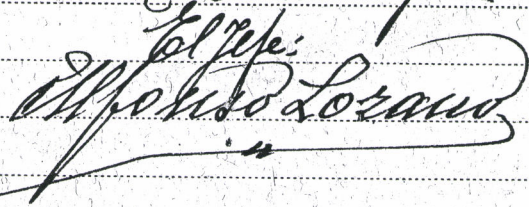 El Jefe:
Alfonso Lozano